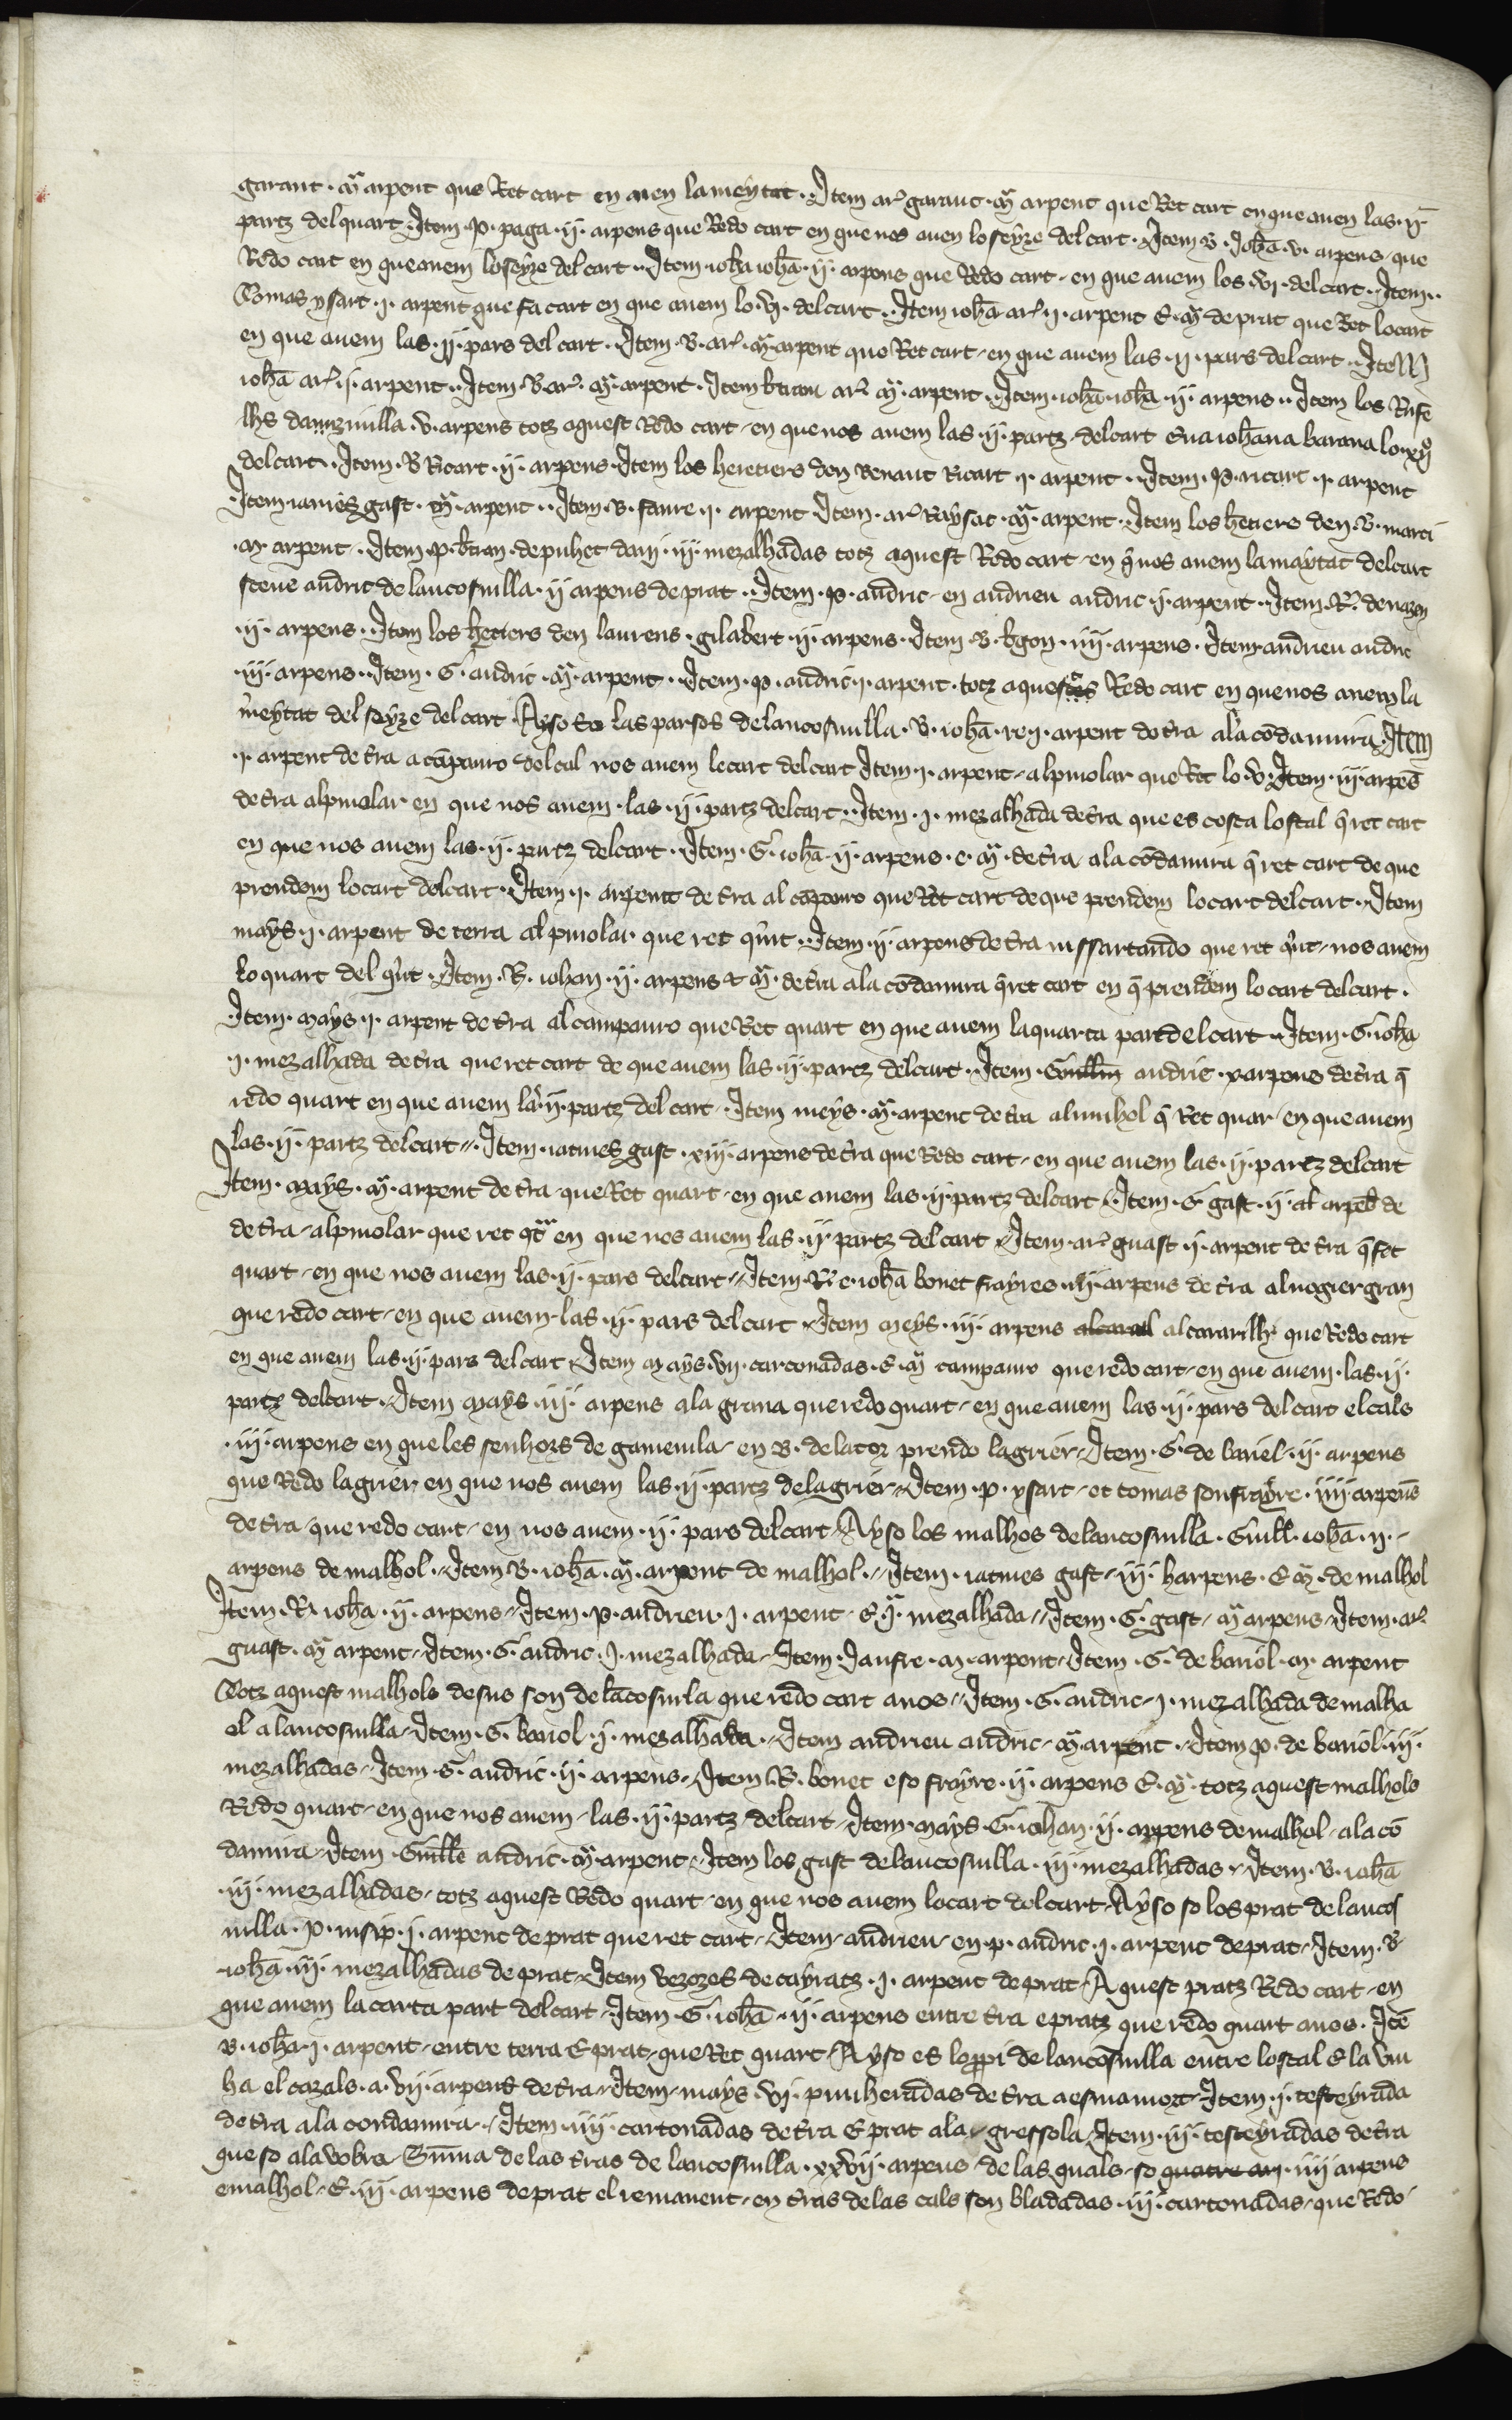 garaut · aͣ arpent que Ret cart en auen la meytat · Item ar̃ garaut · aͣ arpent que Ret cart en que auen las · ij ·
partz del quart · Item · P · paga · ij · arpens que Redo cart en que nos auen lo seyze del cart · Item B · Johã · v · arpens · que
Redo cart en que auem lo seyze del cart · Item · iohã iohã · ij · arpens que Redo cart · en que auem los · vi · del cart · Item ·
Tomas ysart · i · arpent que fa cart en que auem lo · vi · del cart · Item iohã ar̃ · i · arpent E · aͣ de prat que Ret lo cart
en que auem las · ij · pars del cart · Item · B · ar̃ · aͣ · arpent que Ret cart · en que auem las · ij · pars del cart · Item
iohã ar̃ · i · arpent · Item · B · ar̃ · aͣ · arpent · Item btran ar̃ aͣ · arpent · Item · iohã · iohã · ij · arpens · Item los Rufe
lhs · v · arpens totz aquest Redo cart · en que nos auem las · ij · partz del cart E na iohana barana lo · xij
del cart · Item · B Ricart · ij · arpens · Item los heretiers den Benaut Ricart · i · arpent · Item · P · ricart · i · arpent
Item iames gast · aͣ · arpent · Item · B · faure · i · arpent Item · ar̃ Raysac · aͣ · arpent · Item los hetiers den · B · marti
· aͣ · arpent · Item · P · btran · de puhet · iij · mezalhadas totz aquest Redo cart · en q̃ nos auem la maytat del cart
steue andric de lancosuilla · ij arpens de prat · Item · P · andric · en andrieu andric · i · arpent · Item · R ·
· ij · arpens · Item los hetiers den laurens · gilabert · ij · arpens · Item · B · bgon · iiij · arpens · Item andrieu andric
· iij · arpens · Item · G · andric · aͣ · arpent · Item · P · andric · i · arpent · totz aquestas Redo cart en que nos auem la
meytat del seyze del cart · Ayso so las parsos de lancosuilla · B · iohã · i · arpent de tra a la codamina · Item
· i · arpent de tra a cãpauro del cal nos auem le cart del cart Item · i · arpent · al pinolar que Ret lo · v · Item · iij · arpẽs
de tra al pinolar en que nos auem · las · ij · partz del cart · Item · i · mezalhada de tra que es costa lostal q̃ ret cart
en que nos auem las · ij · partz del cart · Item · G · iohã · ij · arpens · e · aͣ · de tra a la codamina q̃ ret cart de que
prendem lo cart del cart · Item · i · arpent de tra al cãpauro que Ret cart de que prendem lo cart del cart · Item
mays · i · arpent de terra al pinolar que ret q̃rt · Item · ij · arpens de tra que ret q̃rt · nos auem
lo quart del q̃rt · Item · R · iohan · ij · arpens & aͣ · de tra a la codamina q̃ ret cart en q̃ prendem lo cart del cart ·
Item · mays · i · arpent de tra al campauro que Ret quart en que auem la quarta part del cart · Item · G · iohã
· i · mezalhada de tra que ret cart de que auem las · ij · partz del cart · Item · Guillm andric · v arpens de tra q̃
redo quart en que auem las · ij · partz del cart · Item meys · aͣ · arpent de tra q̃ Ret quar · en que auem
las · ij · partz del cart · Item · iacmes gast · xiij · arpens de tra que Redo cart · en que auem las · ij · partz del cart
Item · mays · aͣ · arpent de tra · que Ret quart · en que auem las · ij · partz del cart · Item · G gast · ij · arpẽs de
de tra · al pinolar que ret en que nos auem las · ij · partz del cart · Item · ar̃ guast · i · arpent de tra q̃ Ret
quart · en que nos auem las · ij · pars del cart · Item · R · e · iohã bonet frayres · iij · arpens de tra al nogier gran
que redo cart · en que auem · las · ij · pars del cart · Item meys · iij · arpens al cararilh que Redo cart
en que auem las · ij · pars del cart · Item mays · vij · cartonadas · E · aͣ campauro que redo cart · en que auem · las · ij ·
partz del cart · Item mays · iij · arpens a la graua que redo quart · en que auem las · ij · pars del cart el cals
· iij · arpens en que les senhors de gameuila · en B · de la tor prendo lagrier · Item · G · de bariel · ij · arpens
que Redo lagrier en que nos auem las · ij · partz de lagrier · Item · P · ysart · et tomas son frayre · iiij · arpens
de tra · que redo cart · en nos auem · ij · pars del cart · Ayso los malhos de lancosuilla · Guill · iohã · ij ·
arpens de malhol · Item B · iohã · aͣ · arpent de malhol · Item · iacmes gast · iij · harpens · E aͣ · de malhol
Item · R · iohã · ij · arpens · Item · P · andrieu · i · arpent · E · i · mezalhada · Item · G · gast · aͣ arpens · Item · ar̃
guast · aͣ arpent · Item · G · andric · i · mezalhada · Item · Jaufre · aͣ · arpent · Item · G · de bariol · aͣ · arpent
Totz aquest malhols desus son de lãcosuila que redo cart a nos · Item · G · andric · i · mezalhada de malha
ol a lancosuilla · Item · G · bariol · i · mezalhada · Item andrieu andric · aͣ arpent · Item P · de bariol · iij ·
mezalhadas · Item · G · andric · ij · arpens · Item · R · bonet e so frayre · ij · arpens E · aͣ · totz aquest malhols
Redo quart · en que nos auem · las · ij · partz · del cart · Item · mays · G · iohan · ij · arpens de malhol · a la co
damina · Item · Guillẽ andric · aͣ · arpent · Item los gast de lancosuilla · iij · mezalhadas · Item · B · iohã
· iij · mezalhadas · totz aquest Redo quart · en que nos auem lo cart del cart · Ayso so los prat de lancos
uilla · P · · i · arpent de prat que ret cart · Item · andrieu · en · p · andric · i · arpent de prat · Item · B
iohã · iij · mezalhadas de prat · Item vezozes de cayratz · i · arpent de prat · Aquest pratz Redo cart · en
que auem la carta part del cart · Item · G · iohã · ij · arpens entre tra e pratz que redo quart a nos · Itẽ
B · iohã · i · arpent · entre terra E prat · que Ret quart · Ayso es lo ppi de lancosuilla entre lostal E la vin
ha el cazals · a · vij · arpens de tra · Item · mays · vi · punheradas de tra a esmamort · Item · i · testeyrada
de tra a la condamina · Item · iiij · cartonadas de tra E prat a la · gressola · Item · iij · testeyradas de tra
que so a la vobra · Suma de las tras de lancosuilla · xxvij · arpens · de las quals · so quatre arp · iiij arpens
e malhol · E · iij · arpens de prat el remanent · en tras de las cals son bladadas · iij · cartonadas · que Redo